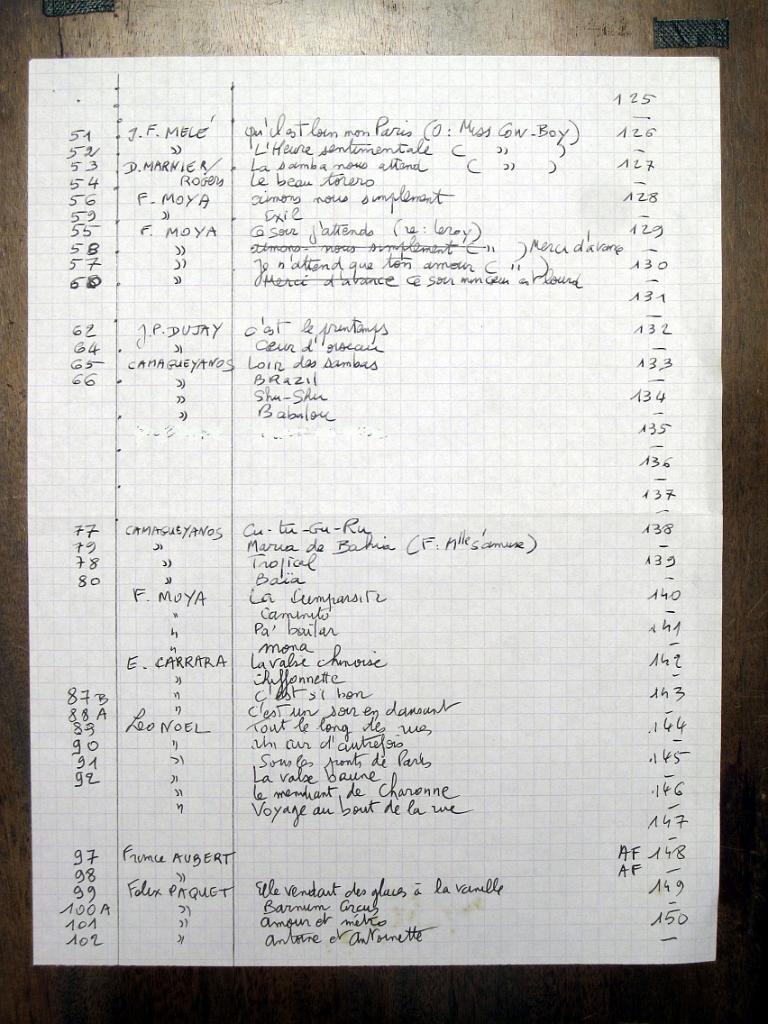 125
—
51 J.F. MELÉ qu'il est loin mon Paris (O: Miss Cow-Boy) 126
52 » L'Heure sentimentale ( » ) —
53 D. MARNIER/ La samba nous attend ( » ) 127
54 ROGERS Le beau torero —
56 F. MOYA aimons nous simplement 128
59 » Exil —
55 F. MOYA Ce soir j'attends (re: leroy) 129
58 » aimons-nous simplement ( » ) Merci d'avance —
57 » Je n'attend que ton amour ( » ) 130
60 Merci d'avance Ce soir mon cœur est lourd —
131
—
62 J.P. DUJAY C'est le printemps 132
64 » Cœur d'oiseau —
65 CAMAGUEYANOS Loin des sambas 133
66 » BRAZIL —
» Shu-Shu 134
» Babalou —
135
—
136
—
137
—
77 CAMAGUEYANOS Cu-tu-Gu-Ru 138
79 » Maria de Bahia (F: Mlle s'amuse) —
78 » Tropical 139
80 » Baïa —
F. MOYA La Cumparsita 140
" Caminito —
" Pa' bailar 141
" mona —
E. CARRARA La valse chinoise 142
" Chiffonnette —
87 B " C'est si bon 143
88 A " C'est un soir en dansant —
89 Leo NOEL Tout le long des rues 144
90 " Un air d'autrefois —
91 » Sous les ponts de Paris 145
92 " La valse brune —
" Le mendiant de Charonne 146
" Voyage au bout de la rue —
147
—
97 France AUBERT AF 148
98 » AF —
99 Felix PAQUET Elle vendait des glaces à la vanille 149
100A » Barnum Circus —
101 » amour et métro 150
102 » Antoine et Antoinette —